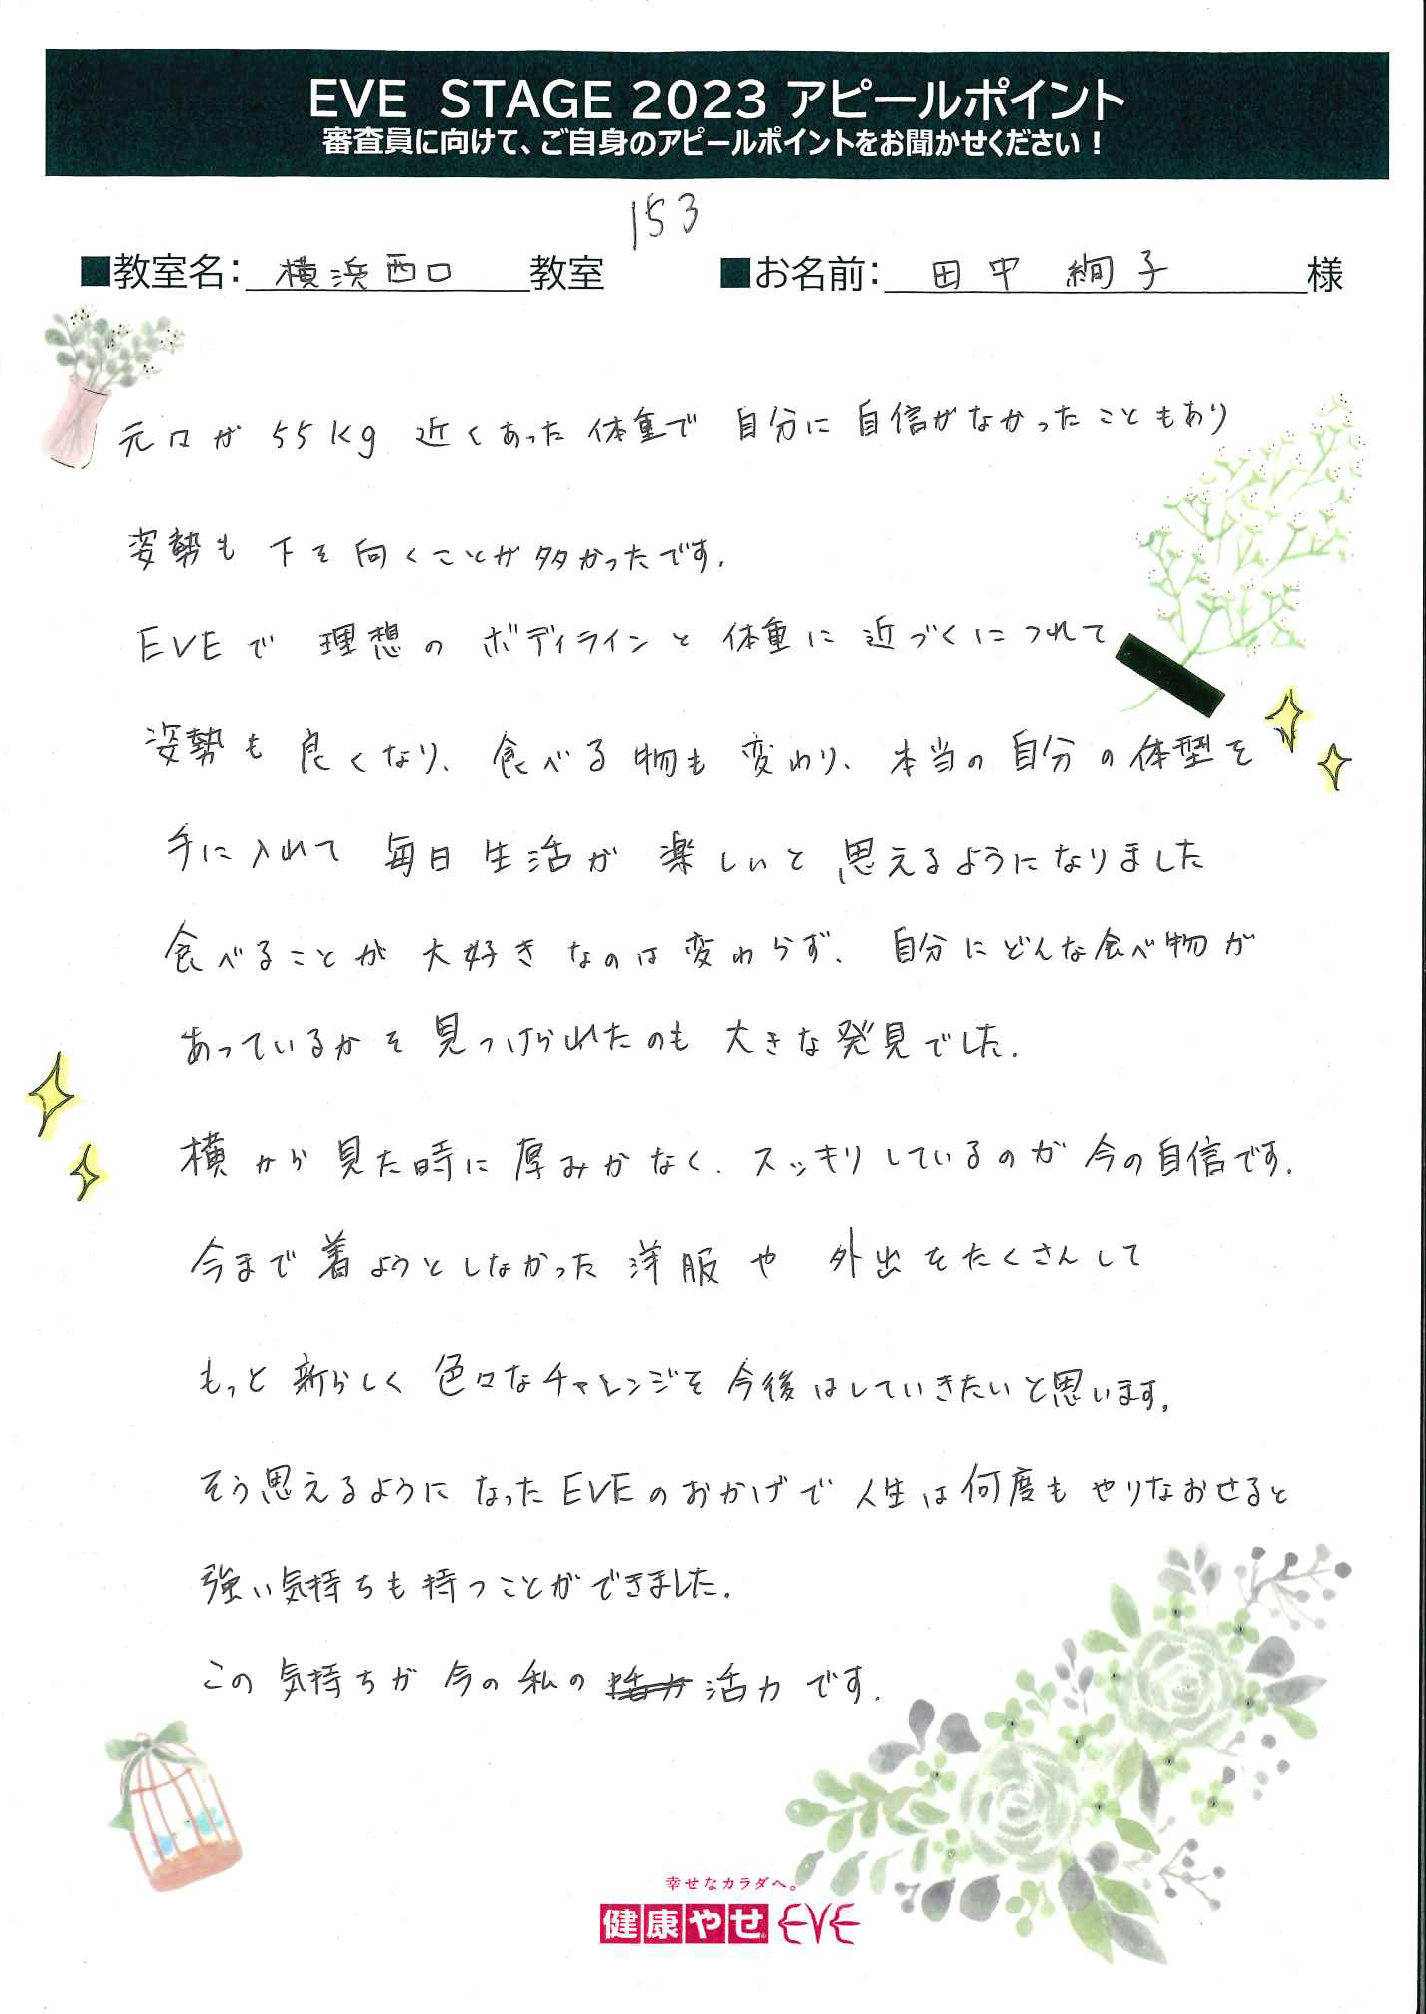 EVE STAGE 2023 アピールポイント
審査員に向けて、ご自身のアピールポイントをお聞かせください！
153
■教室名：横浜西口教室 ■お名前：田中 絢子様
元々が 55kg 近くあった体重で 自分に自信がなかったこともあり
姿勢も 下を向くことが多かったです。
EVEで 理想の ボディラインと 体重に 近づくにつれて
姿勢も 良くなり、食べる物も 変わり、本当の自分の体型を
手に入れて 毎日生活が 楽しいと思えるようになりました
食べることが 大好きなのは変わらず、自分にどんな食べ物が
あっているかを見つけられたのも 大きな発見でした。
横から見た時に厚みがなく、スッキリしているのが今の自信です。
今まで着ようとしなかった洋服や 外出をたくさんして
もっと新らしく色々なチャレンジを今後はしていきたいと思います。
そう思えるようになったEVEのおかげで人生は何度もやりなおせると
強い気持ちも持つことができました。
この気持ちが今の私の 活力です。
幸せなカラダへ。
健康やせ EVE